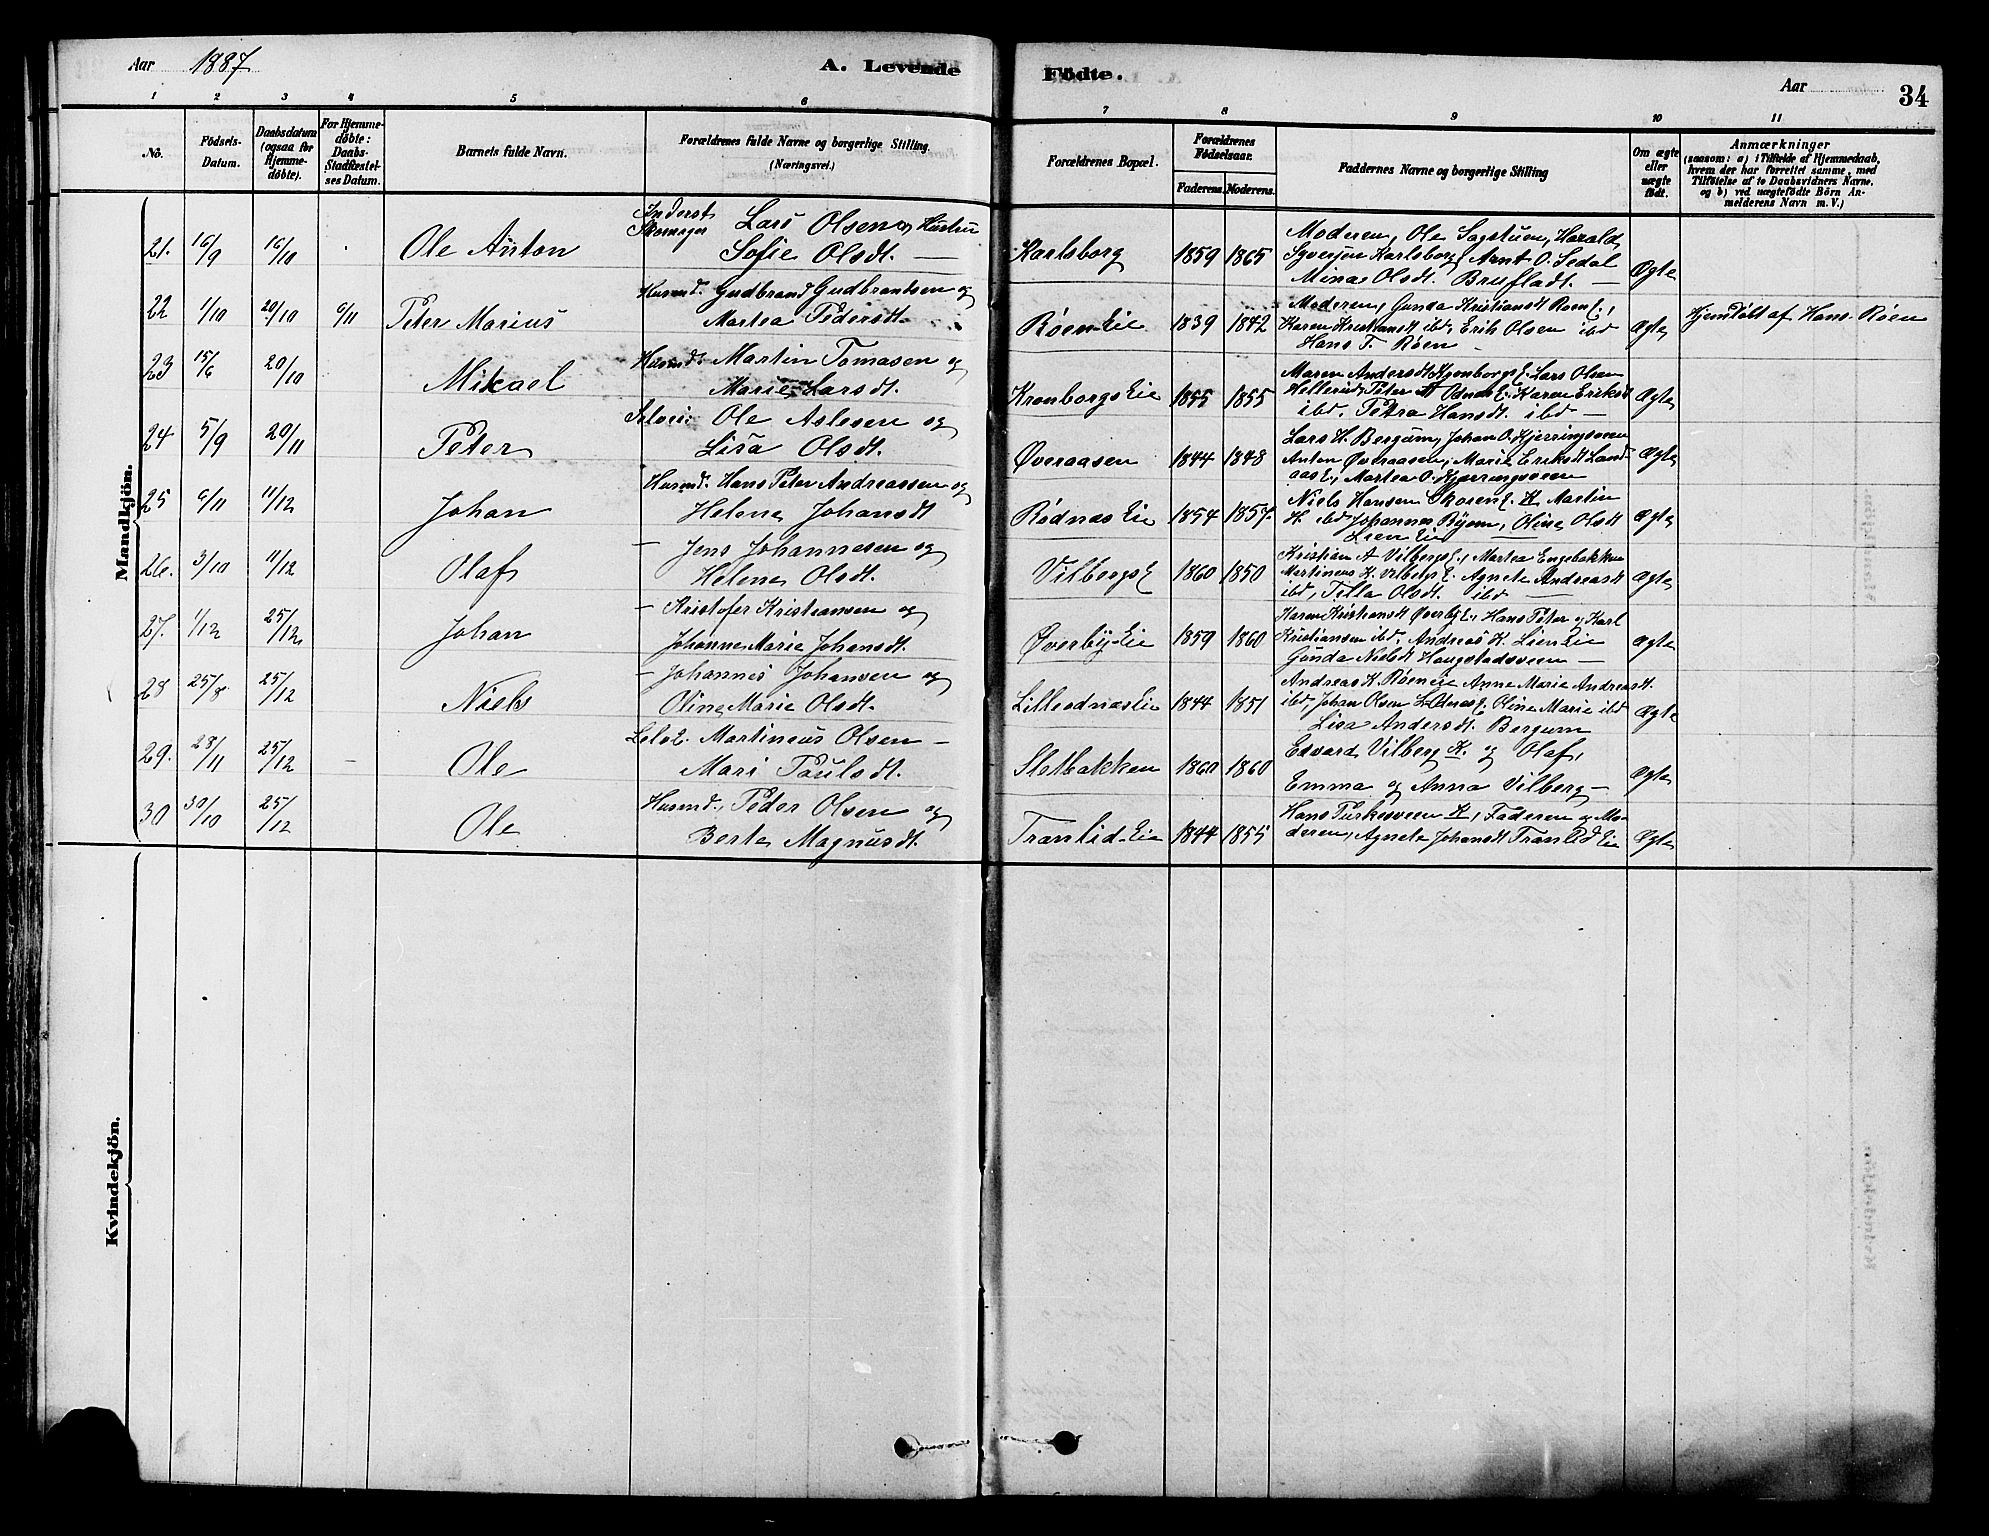 Aar 1887 A. Levende Födte. Aar 34
1 2 3 4 5 6 7 8 9 10 11
No. Födsels-Datum. Daabsdatum (ogsaa for Hjemme-döbte). For Hjemme-döbte: Daabs-Stadfæstel-ses Datum. Barnets fulde Navn. Forældrenes fulde Navne og borgerlige Stilling. (Næringsvei.) Forældrenes Bopæl. Forældrenes Födselsaar. Faderens. Moderens. Faddernes Navne og borgerlige Stilling Om ægte eller uægte födt. Anmærkninger (saasom: a) i Tilfælde af Hjemmedaab, hvem der har forrettet samme, med Tilföielse af to Daabsvidners Navne, og b) ved uægtefödte Börn An-melderens Navn m. V.)
Mandkjön.
21. 16/9 16/10 Ole Anton Inderst Skomager Lars Olsen og Hustru
Sofie Olsdt. — Karlsborg 1859 1865 Moderen, Ole Sagstuen, Harald
Karlsborg, Arnt O. Sedal
Mina Olsdt. Brufladt. — Ægte
22 1/10 20/10 6/11 Peter Marius Husmd. Gudbrand Gudbrantsen og
Martea Pedersdt. Røen Eie 1839 1842 Moderen, Gunda Kristiansdt Roen E.,
Karen Kristiansdt ibd, Erik Olsen ibd
Hans T. Røen — Ægte Hjemdøbt af Hans Røen
23 15/6 20/10 Mikael Husmd. Martin Tomasen og
Marie Larsdt. Kronborgs Eie 1855 1855 Maren Andersdt Kronborgs E. Lars Olsen
Hellerud, Peter Odnæs E. Karen Eriksdt
ibd, Petra Hansdt. ibd — Ægte
24 5/9 20/11 Peter Selvei: Ole Aslesen og
Lisa Olsdt. Øveraasen 1844 1848 Lars H. Bergum, Johan O. Hjerringsveen
Anton Øveraasen, Marie Eriksdt Land-
aas E, Martea O. Hjerringsveen Ægte
25 6/11 11/12 Johan Husmd: Hans Peter Andreassen og
Helene Johansdt Rødnæs Eie 1854 1857. Niels Hansen Skosen E. K Martin
H. ibd Johannes Byom, Oline Olsdt
Lien Eie Ægte
26. 3/10 11/12 Olaf — Jens Johannesen og
Helene Olsdt. Vilbergs E 1860 1850 Kristian A Vilbergs E., Martea Engebakken
Martineus K. Vilbergs E. Agnete Andreasdt
ibd, Tilla Olsdt. ibd — Ægte
27. 1/12 25/12 Johan — Kristofer Kristiansen og
Johanne Marie Johansdt. Øverby Eie 1859 1860 Karen Kristiansdt Øverby E., Hans Peter og Karl
Kristiansen ibd, Andreas K. Lien Eie
Gunda Nielsdt Haugstadsveen — Ægte
28 25/8 25/12 Niels — Johannes Johansen og
Oline Marie Olsdt. Lilleodnæs Eie 1844 1851 Andreas K. Røeneie Anne Marie Andreasdt.
ibd, Johan Olsen Odnæs E, Oline Marie ibd
Lisa Andersdt. Bergum Ægte
29. 28/11 25/12 — Ole Martineus Olsen —
Mari Paulsdt. Sletbakken 1860 1860 Edvard Vilberg K. og Olaf,
Emma og Anna Vilberg — Ægte
30 30/10 25/12 Ole Husmd., Peder Olsen og
Berte Magnusdt. Tranlid Eie 1844 1855 Hans Pukesveen K, Faderen og Mo-
deren, Agnete Johansdt Tranlid Eie Ægte
Kvindekjön.